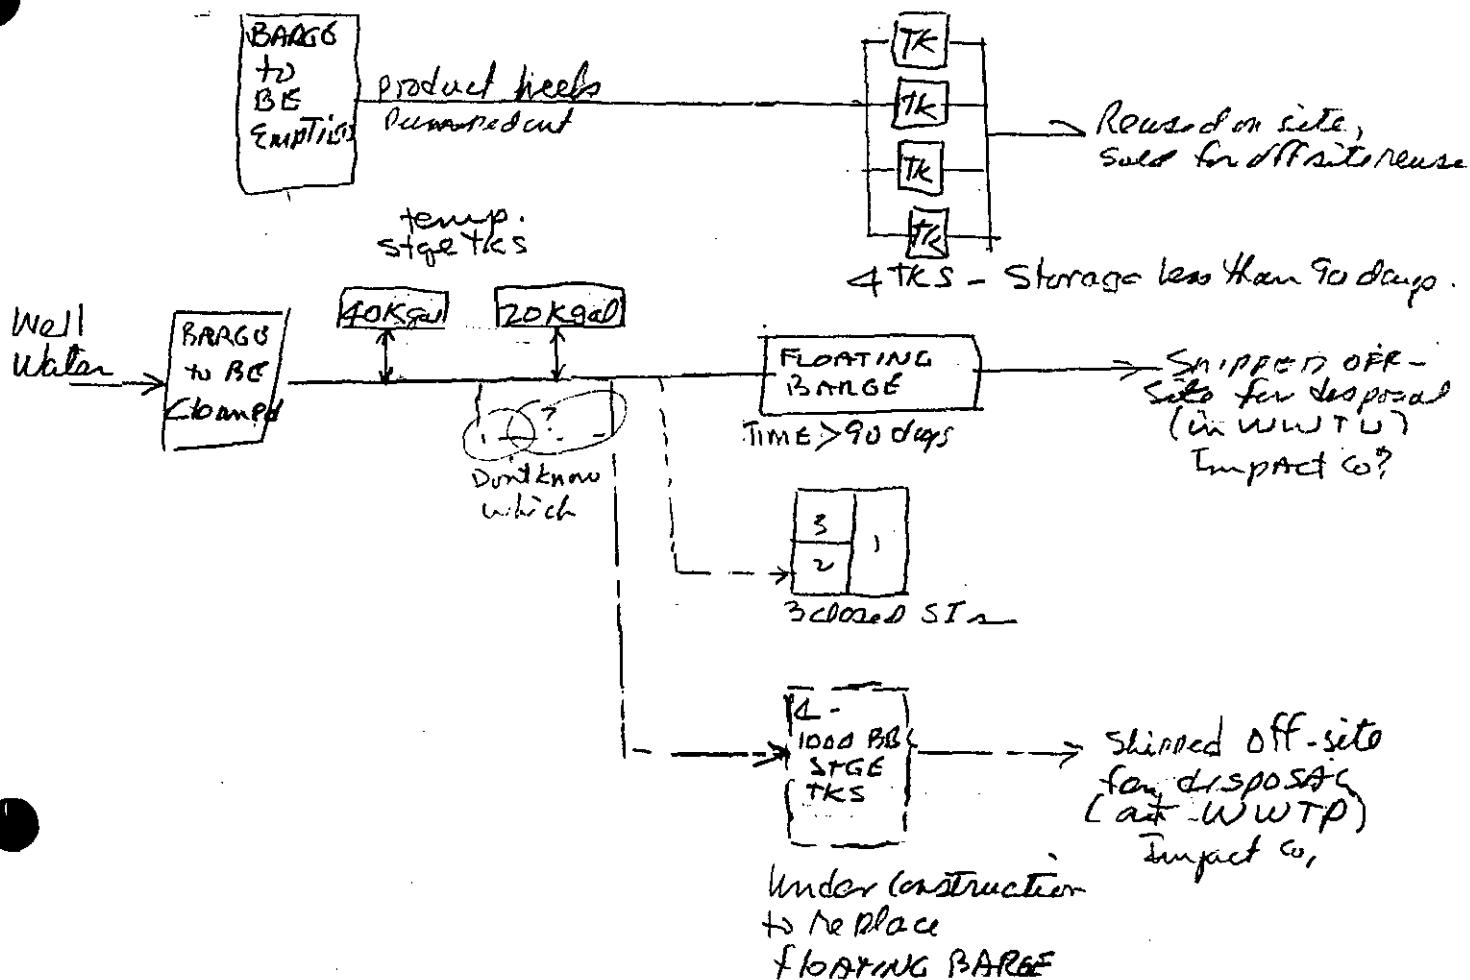 BARGE
to
BE
EMPTIED
product heels
Pumped out
TK
TK
TK
TK
Reused on site,
sold for offsite reuse
4 TKS - Storage less than 90 days.
temp.
Stge TKS
40Kgal
20Kgal
Well
Water
BARGE
to BE
Cleaned
FLOATING
BARGE
TIME > 90 days
SHIPPED OFF-
Site for disposal
(in WWTU)
Impact Co?
?
Dont know
which
3
2
1
3 closed SIs
4 -
1000 BBL
STGE
TKS
Shipped Off-site
for disposal
(at WWTP)
Impact Co,
Under Construction
to replace
floating BARGE